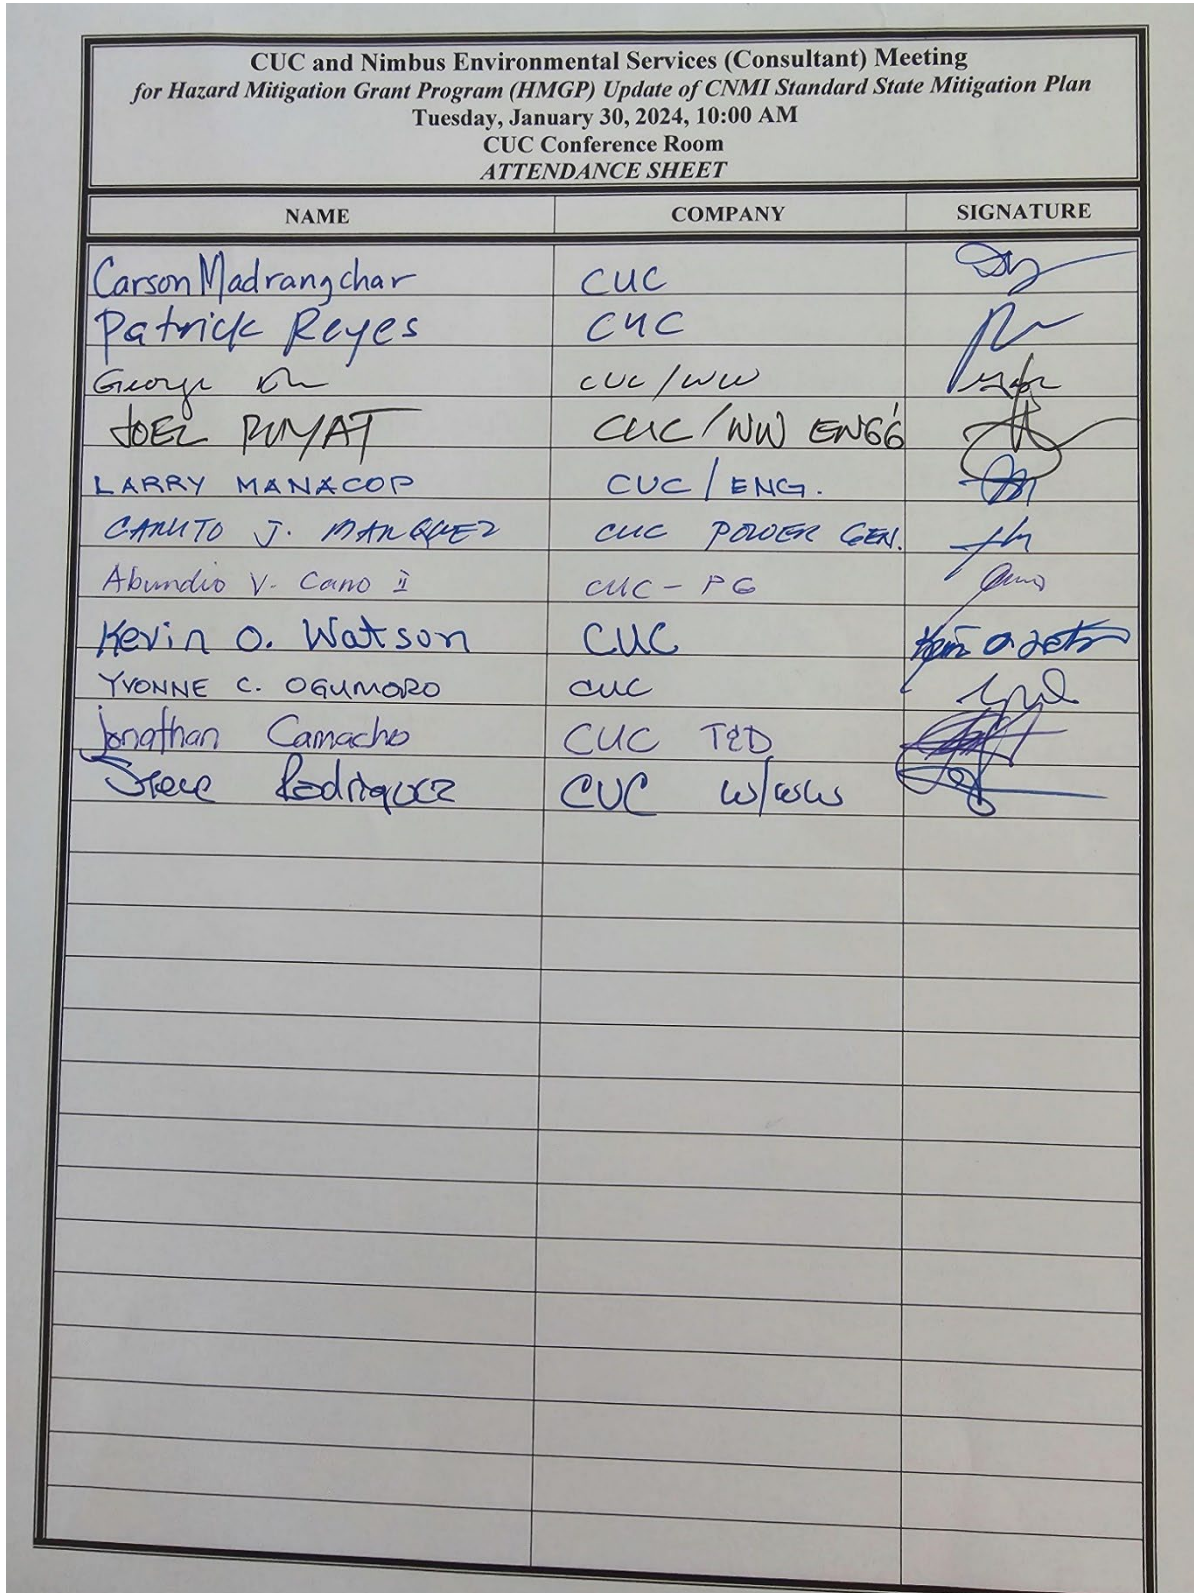 CUC and Nimbus Environmental Services (Consultant) Meeting
for Hazard Mitigation Grant Program (HMGP) Update of CNMI Standard State Mitigation Plan
Tuesday, January 30, 2024, 10:00 AM
CUC Conference Room
ATTENDANCE SHEET
NAME COMPANY SIGNATURE
Carson Madrangchar CUC
Patrick Reyes CUC
George CUC/WW
JOEL CUC/WW ENGG
LARRY MANACOP CUC/ENG.
CANUTO J. MARQUEZ CUC POWER GEN.
Abundio V. Cano II CUC - PG
Kevin O. Watson CUC
YVONNE C. OGUMORO CUC
Jonathan Camacho CUC T&D
Steve Rodriguez CUC W/WW